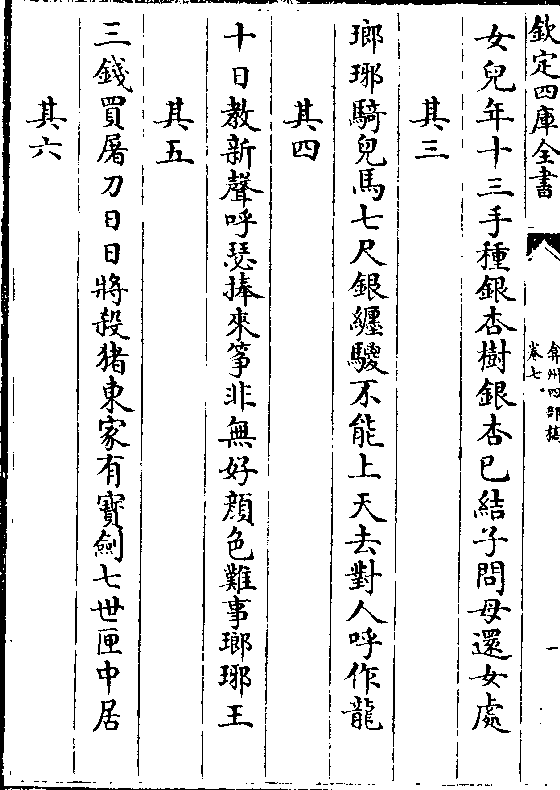 欽定四庫全書
弇州四部稿
卷七
一
女兒年十三手種銀杏樹銀杏已結子問母還女處
其三
瑯琊騎兒馬七尺銀纏騣不能上天去對人呼作龍
其四
十日教新聲呼瑟捧來筝非無好顔色難事瑯琊王
其五
三錢買屠刀日日將殺猪東家有寳劍七世匣中居
其六